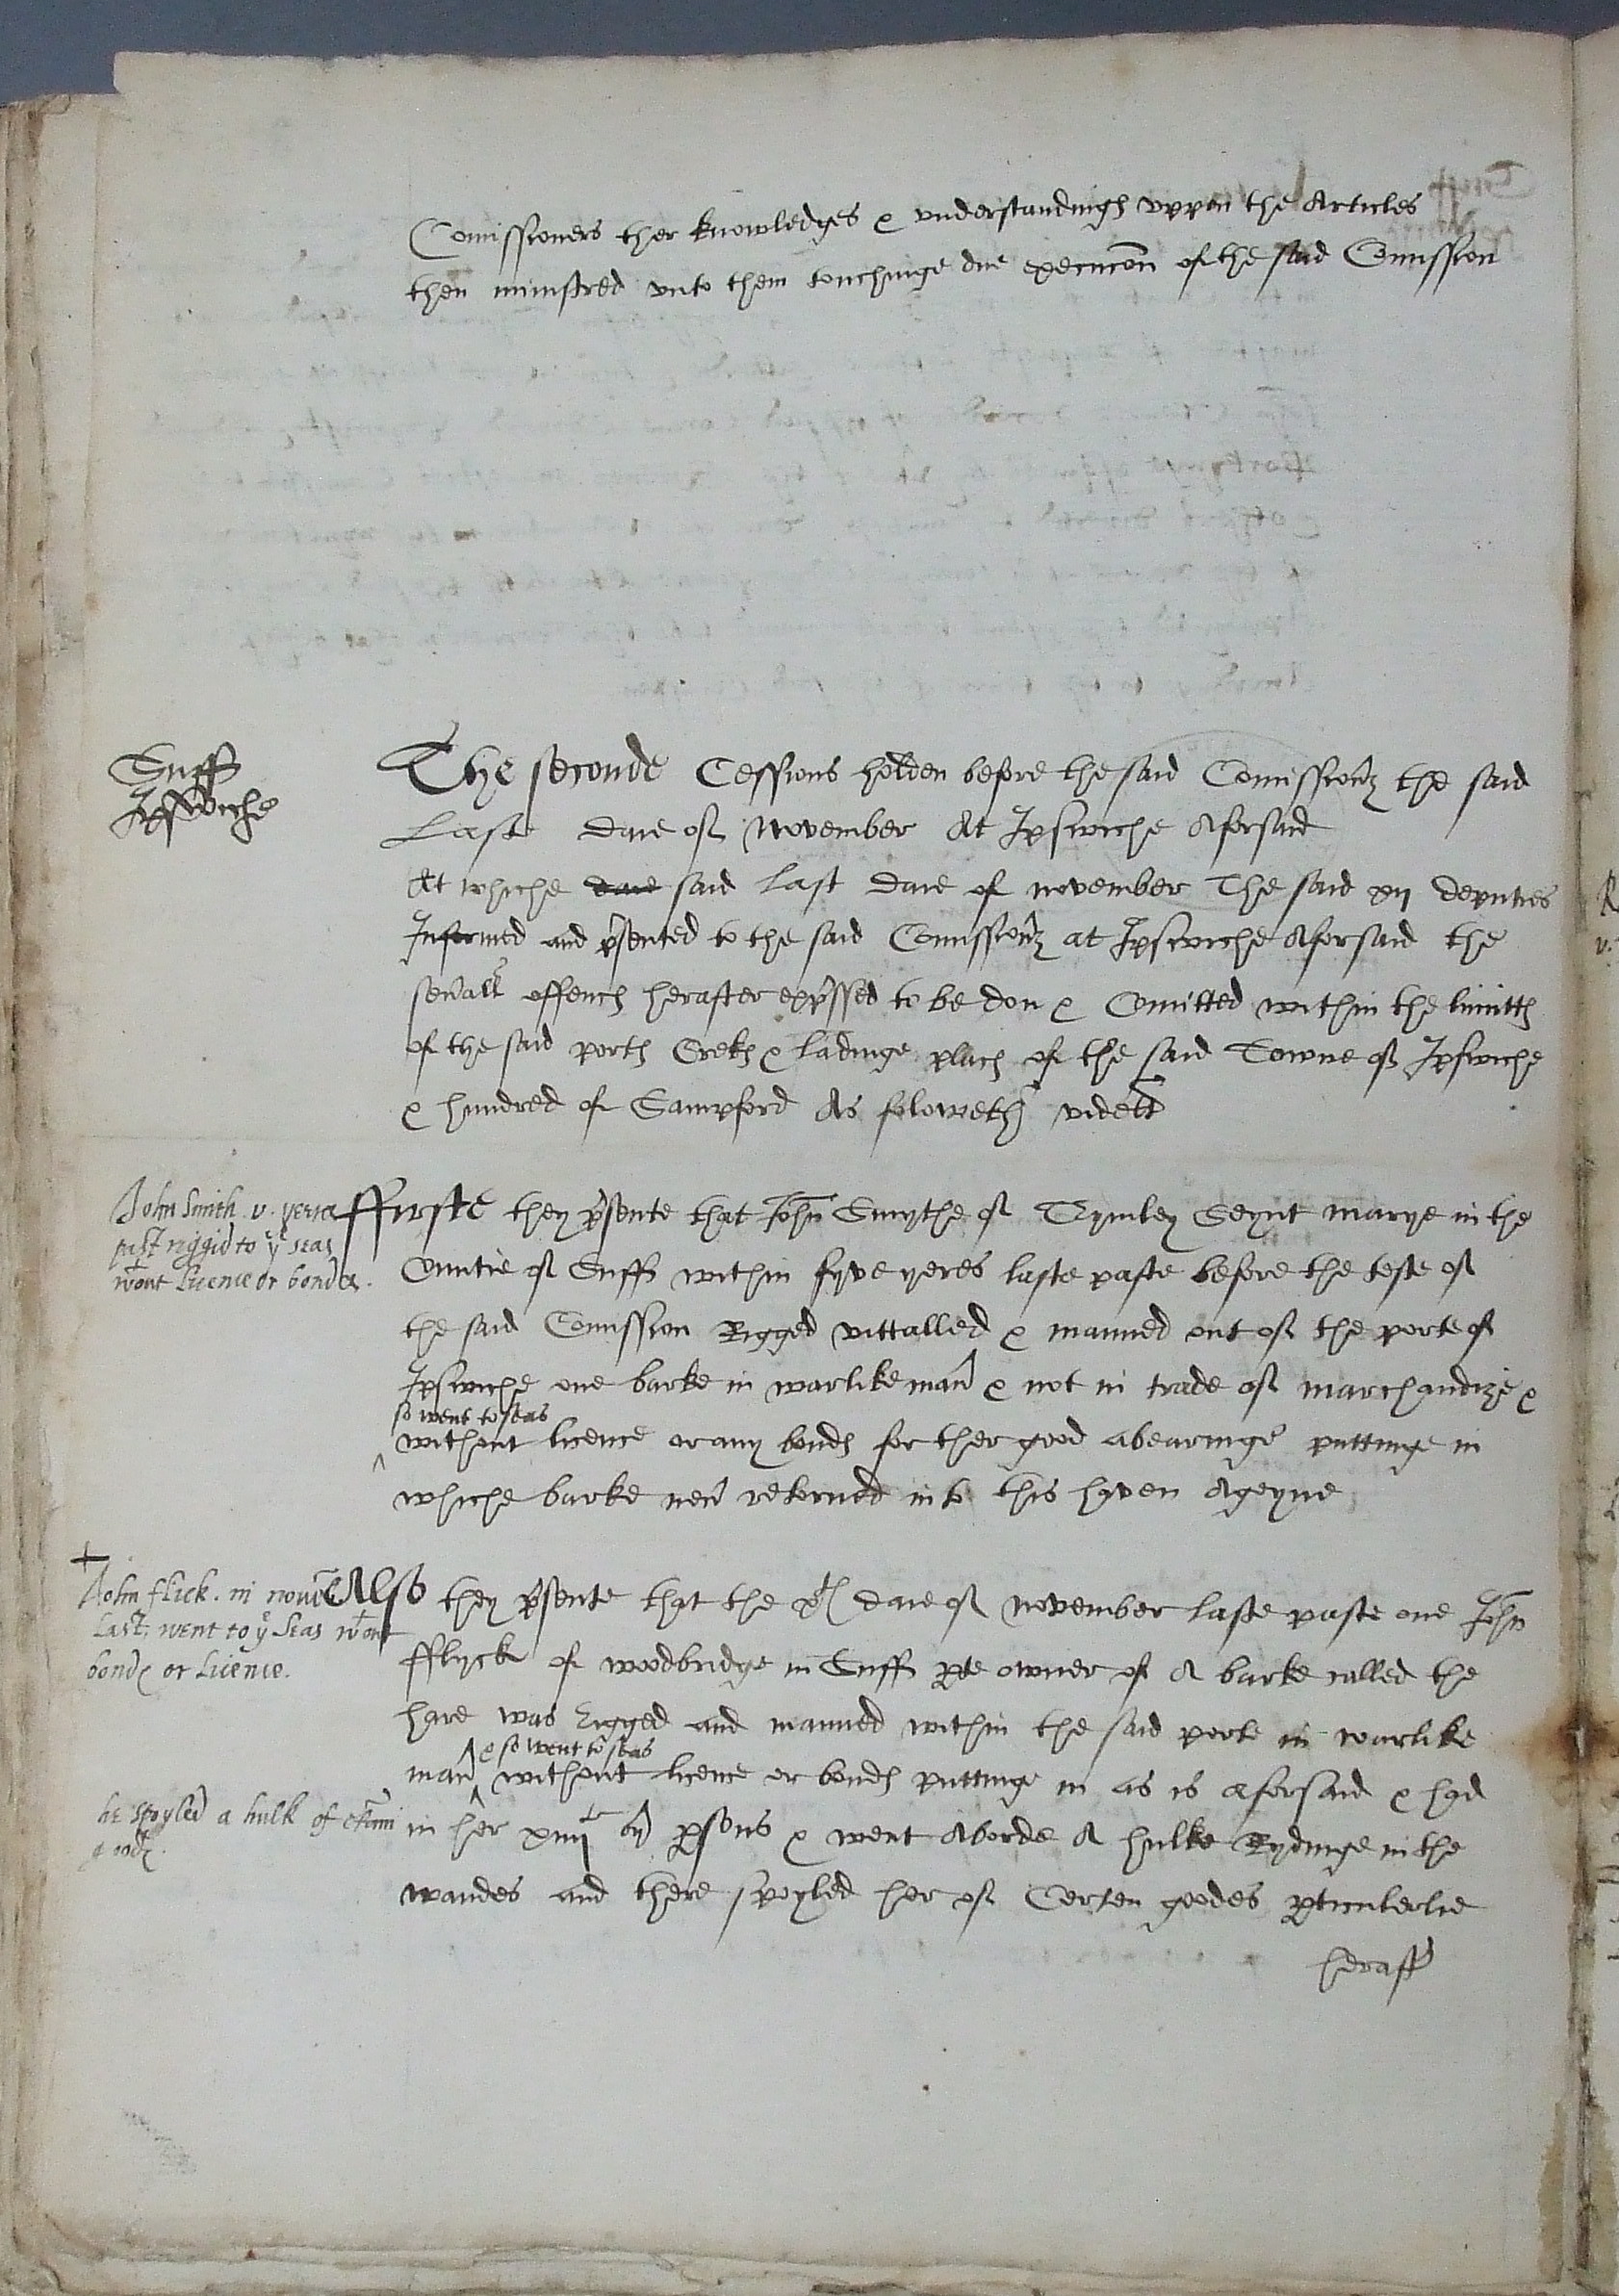 Comissioners ther knowledges & understandings uppon the Articles
then ministred unto them touchinge due execucon of the said Comission
Suff
Ipswiche
The seconde Cessions holden before the said Comissionrs the said
Laste daie of November At Ipswiche Aforsaid
At whiche daie said last daie of november The said xii deputies
Informed and psented to the said Comissionrs at Ipswiche Aforsaid the
seuall offencs herafter expssed to be don & Comitted within the limitts
of the said ports Creks & ladinge placs of the said Towne of Ipswiche
& hundred of Sampford As foloweth videlt
John Smith v. yeres
past riggid to ye seas
wtout Licence or bondes.
ffirste they psente that John Smythe of Trymley Seynt marye in the
Countie of Suff within fyve yeres laste paste before the teste of
the said Comission Rigged vittalled & manned out of the porte of
Ipswiche one barke in warlike man & not in trade of marchandize &
so went to seas
without licence or any bonds for ther good abearinge puttinge in
whiche barke neu retorned in to this haven Ageyne
John flick. in novemb
Last, went to ye Seas wtout
bondes or Licence.
Also they psente that the xth daie of November laste paste one John
fflyck of woodbridge in Suff pte owner of A barke called the
hare was Rigged and manned within the said porte in warlike
& so went to seas
man without licence or bonds puttinge in as is aforsaid & had
he spoyled a hulk of
goodes.
in her xiiii or psons & went Aborde A hulke Rydinge in the
wandes and there spoyled her of Certen goodes pticulerlie
heraft